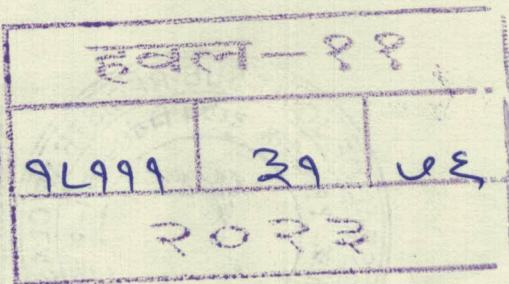 हवल-११
१८१११ ३१ ५६
२०२३